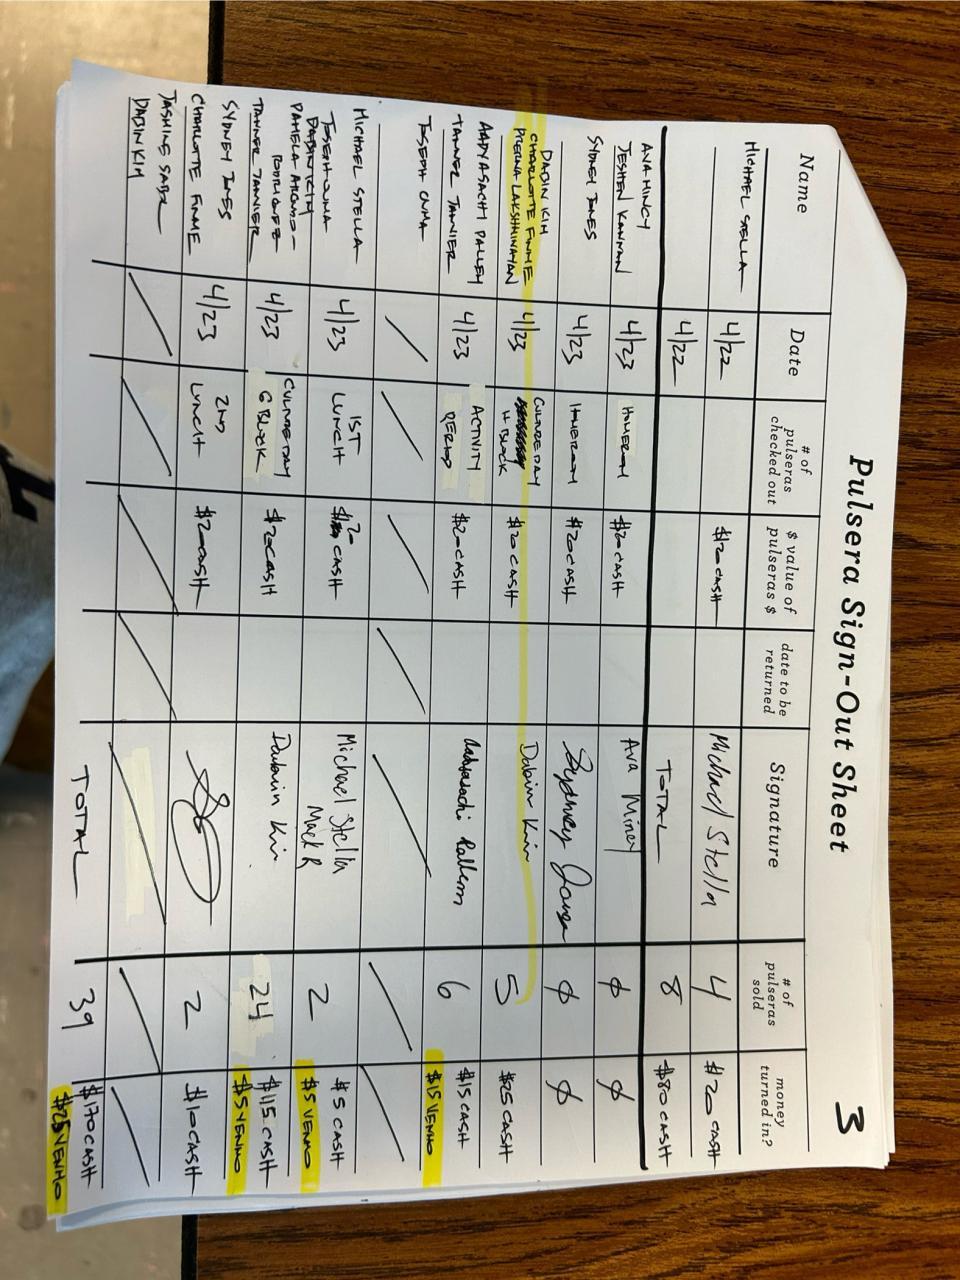 3
Pulsera Sign-Out Sheet
Name
Date
# of
pulseras
checked out
$ value of
pulseras $
date to be
returned
Signature
# of
pulseras
sold
money
turned in?
MICHAEL STELLA
4/22
$20 CASH
Michael Stella
4
$20 CASH
4/22
TOTAL
8
$80 CASH
AVA MINCY
JESHEN KANNAN
4/23
HOMEROOM
$20 CASH
Ava Mincy
∅
∅
SYDNEY JONES
4/23
HOMEROOM
$20 CASH
Sydney Jones
∅
∅
DABIN KIM
CHARLOTTE FINME
LAKSHMINAYAN
4/23
CULTURE DAY
H BLOCK
$20 CASH
Dabin Kim
5
$25 CASH
AADYASACHI PALLEM
TANNER TANNIER
4/23
ACTIVITY
PERIOD
$20 CASH
Aadyasachi Pallem
6
$15 CASH
$15 VENMO
JOSEPH
MICHAEL STELLA
JOSEPH
4/23
1ST
LUNCH
$20 CASH
Michael Stella
Mack R
2
$5 CASH
$5 VENMO
DABIN KIM
PAMELA ALONSO-
RODRIGUEZ
TANNER TANNIER
4/23
CULTURE DAY
G BLOCK
$20 CASH
Dabin Kim
24
$115 CASH
$5 VENMO
SYDNEY JONES
CHARLOTTE FINME
4/23
2ND
LUNCH
$20 CASH
2
$10 CASH
JASMINE
DABIN KIM
TOTAL
39
$170 CASH
$25 VENMO